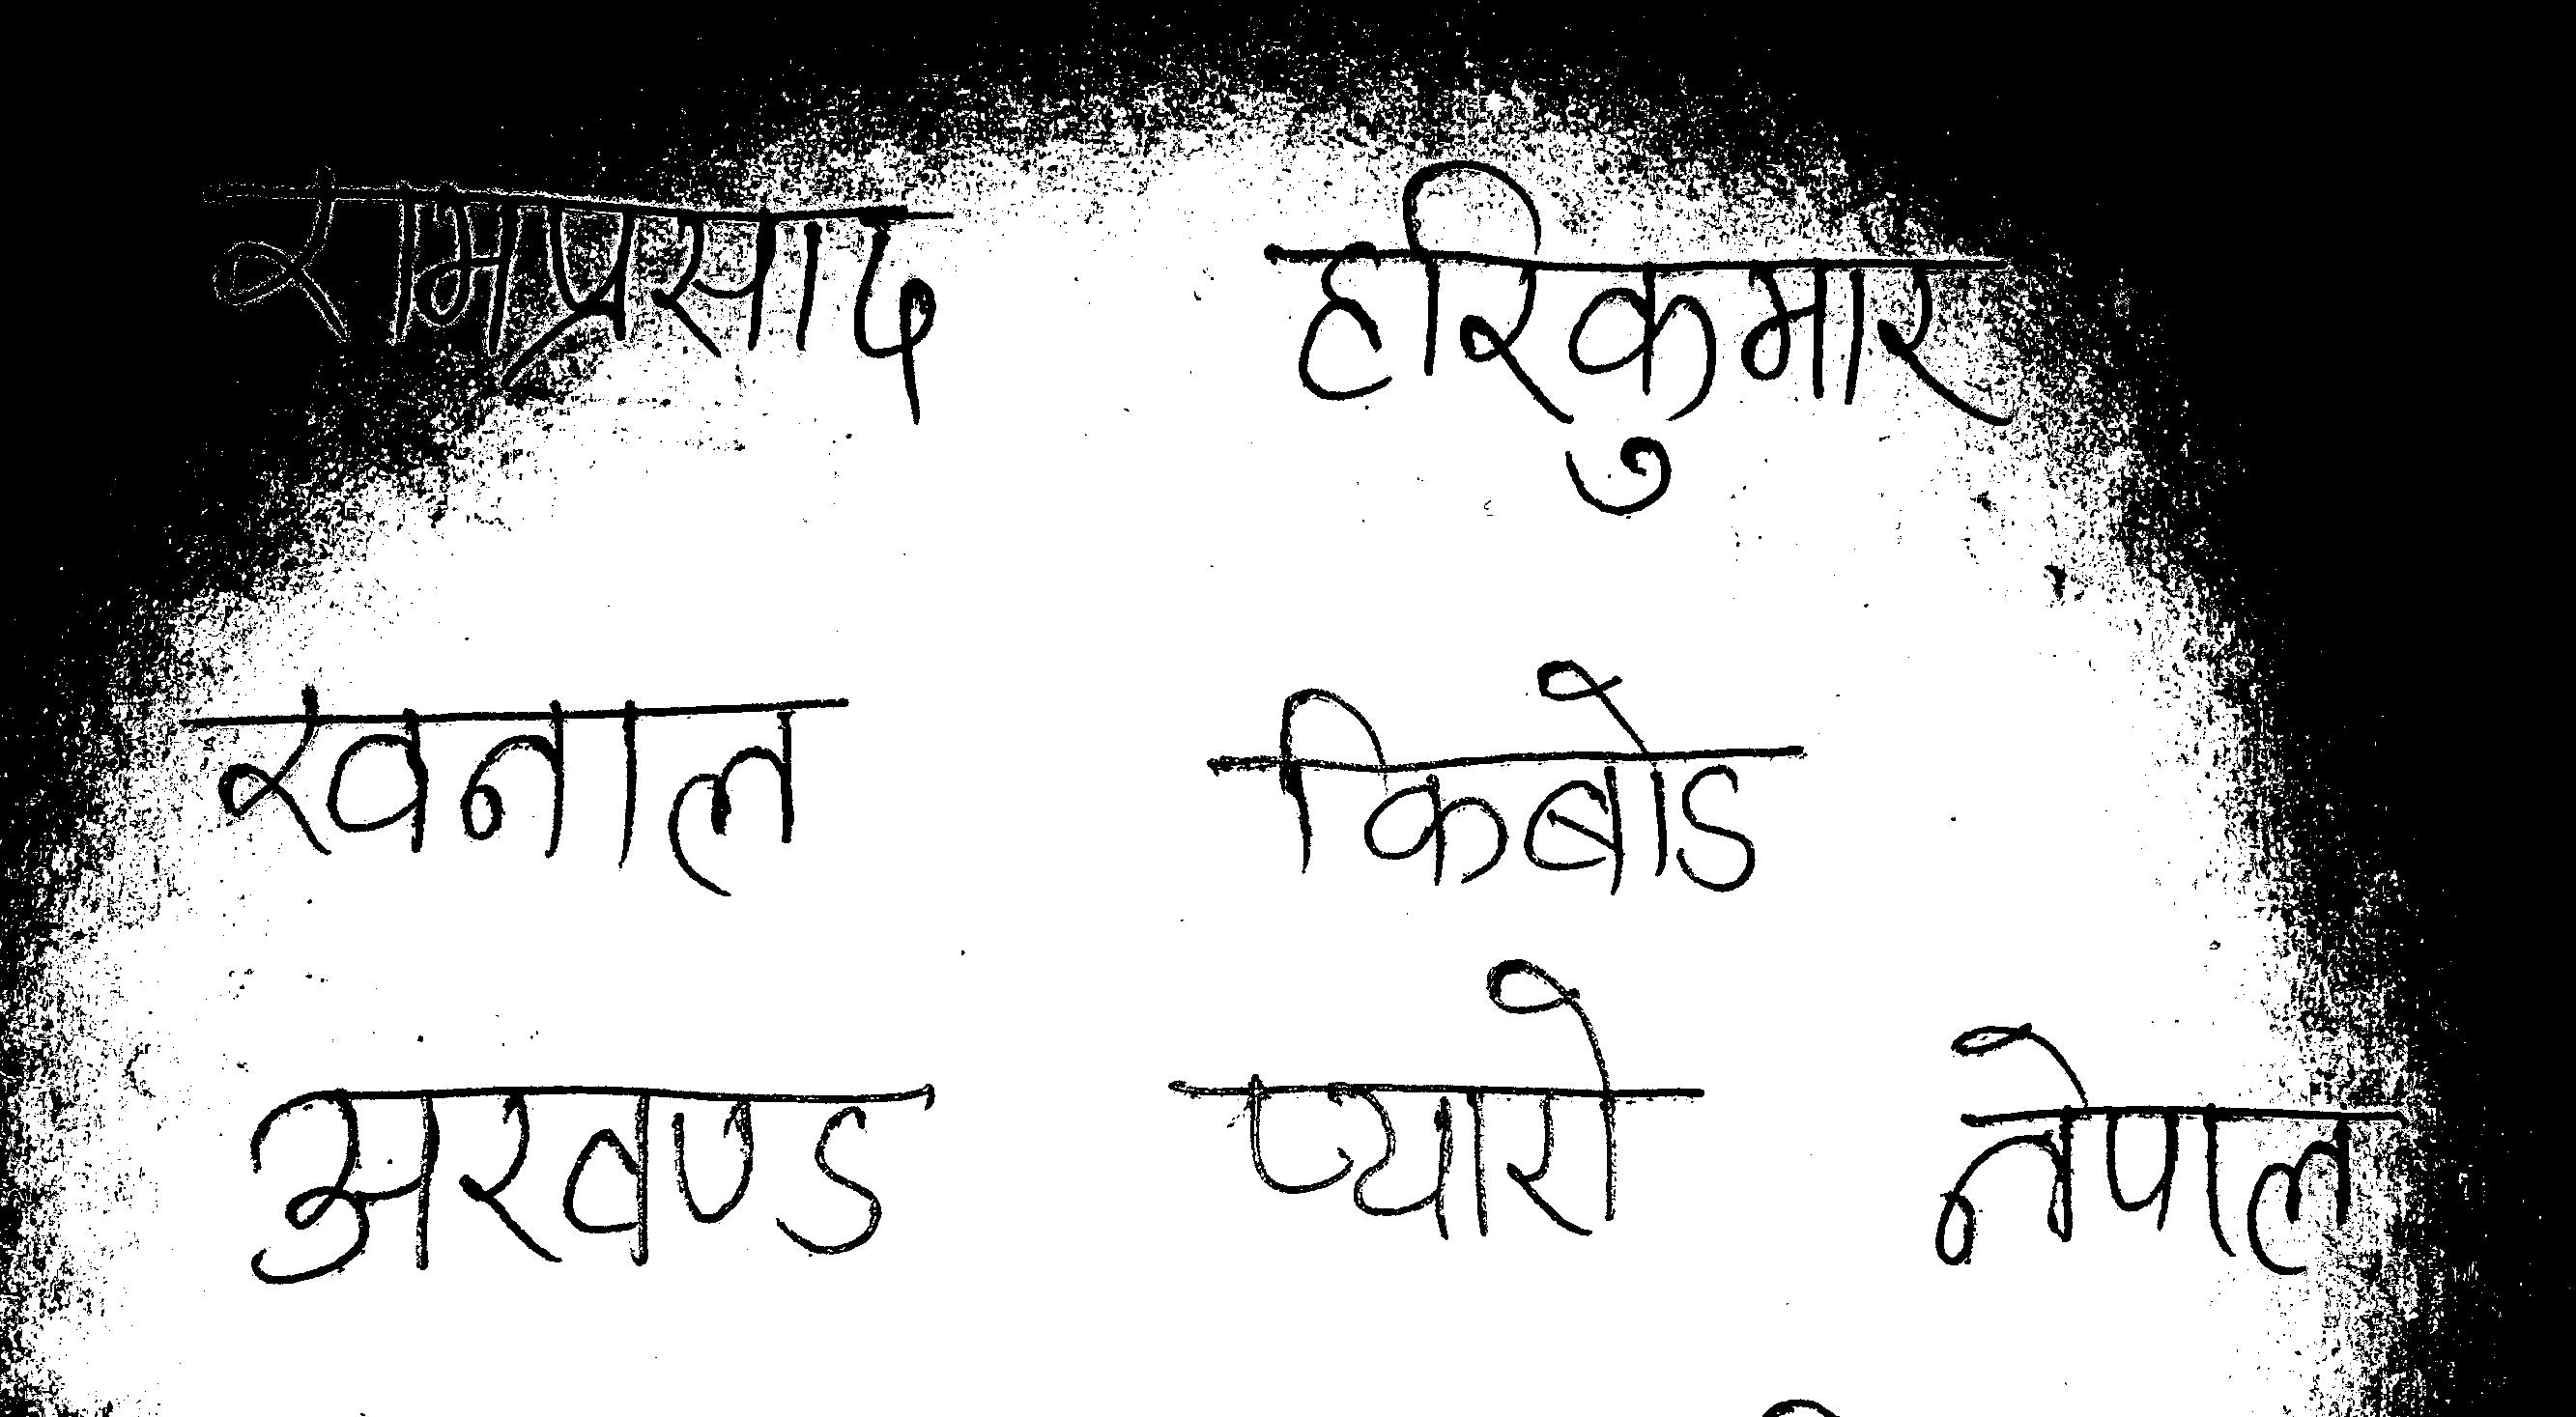 रामप्रसाद हरिकुमार
खनाल किबोर्ड
अखण्ड प्यारो नेपाल